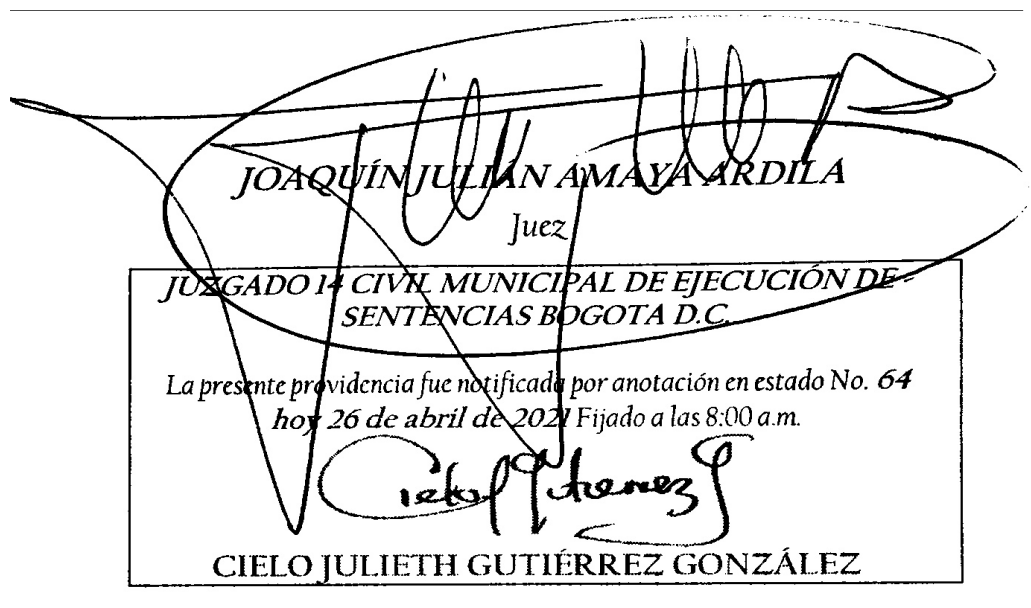 JOAQUÍN JULIÁN AMAYA ARDILA
Juez
JUZGADO 14 CIVIL MUNICIPAL DE EJECUCIÓN DE
SENTENCIAS BOGOTA D.C.
La presente providencia fue notificada por anotación en estado No. 64
hoy 26 de abril de 2021 Fijado a las 8:00 a.m.
Cielo Gutierrez G
CIELO JULIETH GUTIÉRREZ GONZÁLEZ